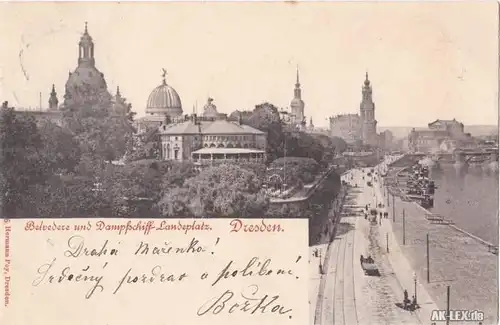 Belvedere und Dampfschiff-Landeplatz. Dresden.
Drahá Mařenko!
Srdečný pozdrav a políbení.
Božka.
Hermann Poy, Dresden.
AK-LEX.de